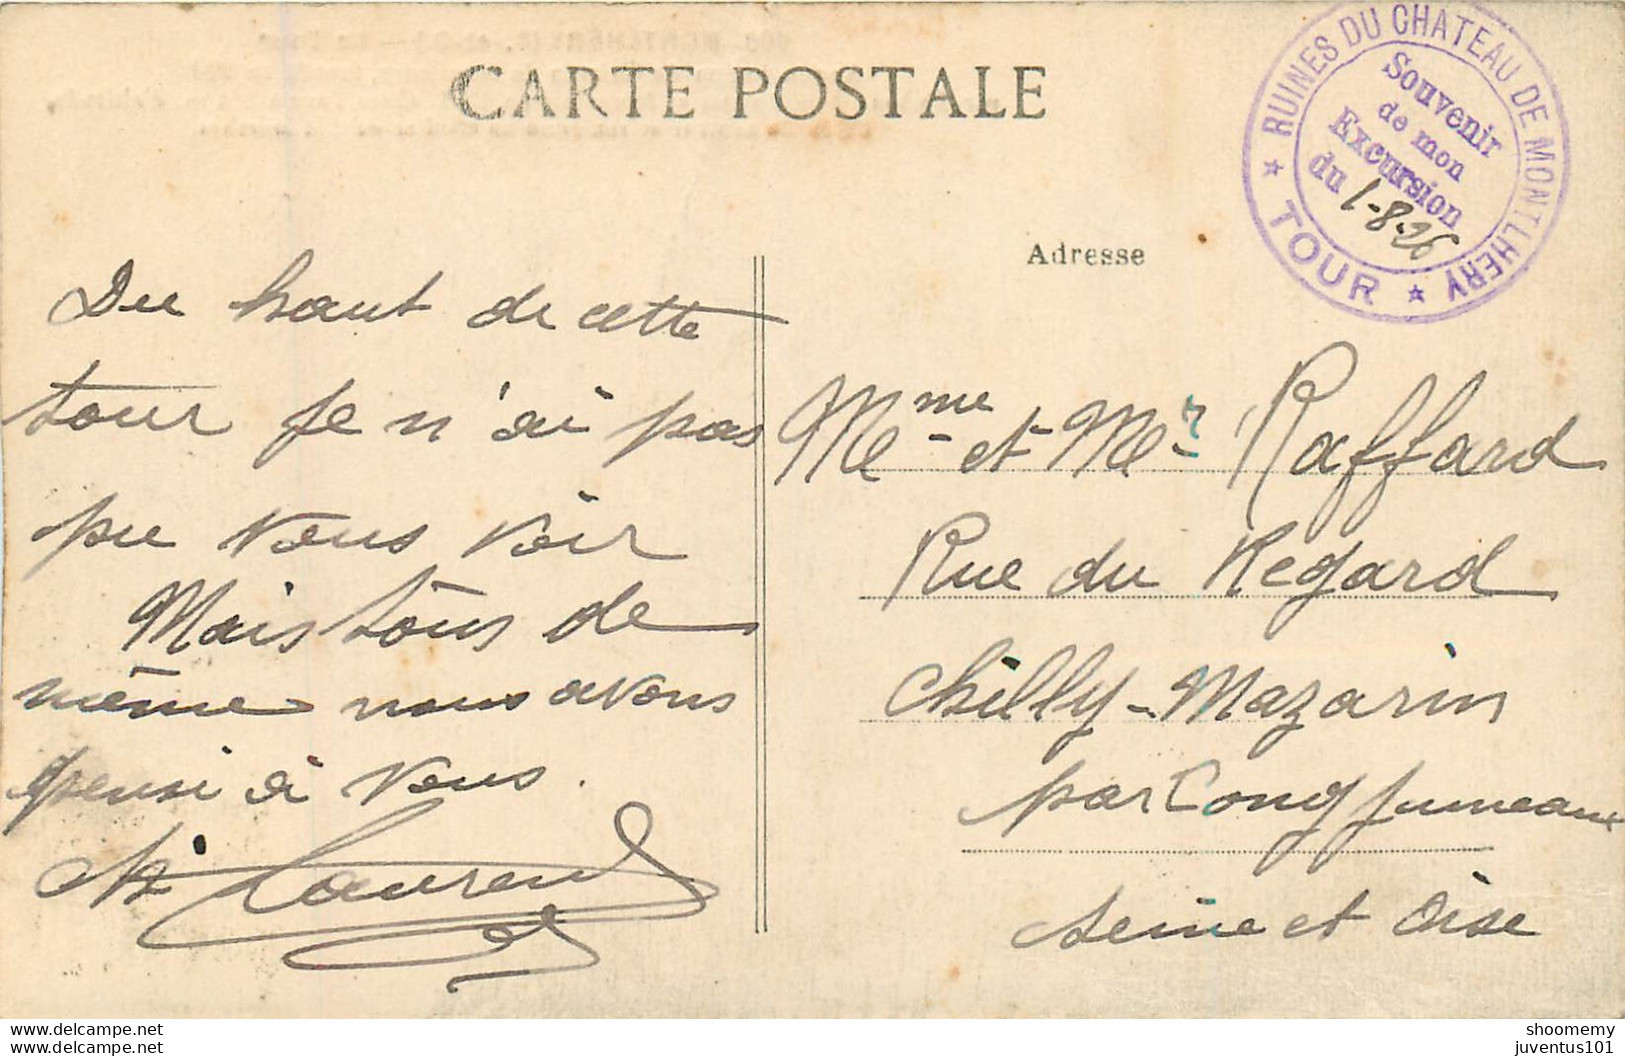 CARTE POSTALE
RUINES DU CHATEAU DE MONTLHERY
★ TOUR ★
Souvenir
de mon
Excursion
du 1-8-26
Adresse
Du haut de cette
tour je n'ai pas
pu vous voir
Mais tous de
même nous avons
pensé à vous.
Laurent
Mme et Mr Raffard
Rue du Regard
Chilly-Mazarin
par Longjumeaux
Seine et Oise
shoomemy
juventus101
juventus101
shoomemy